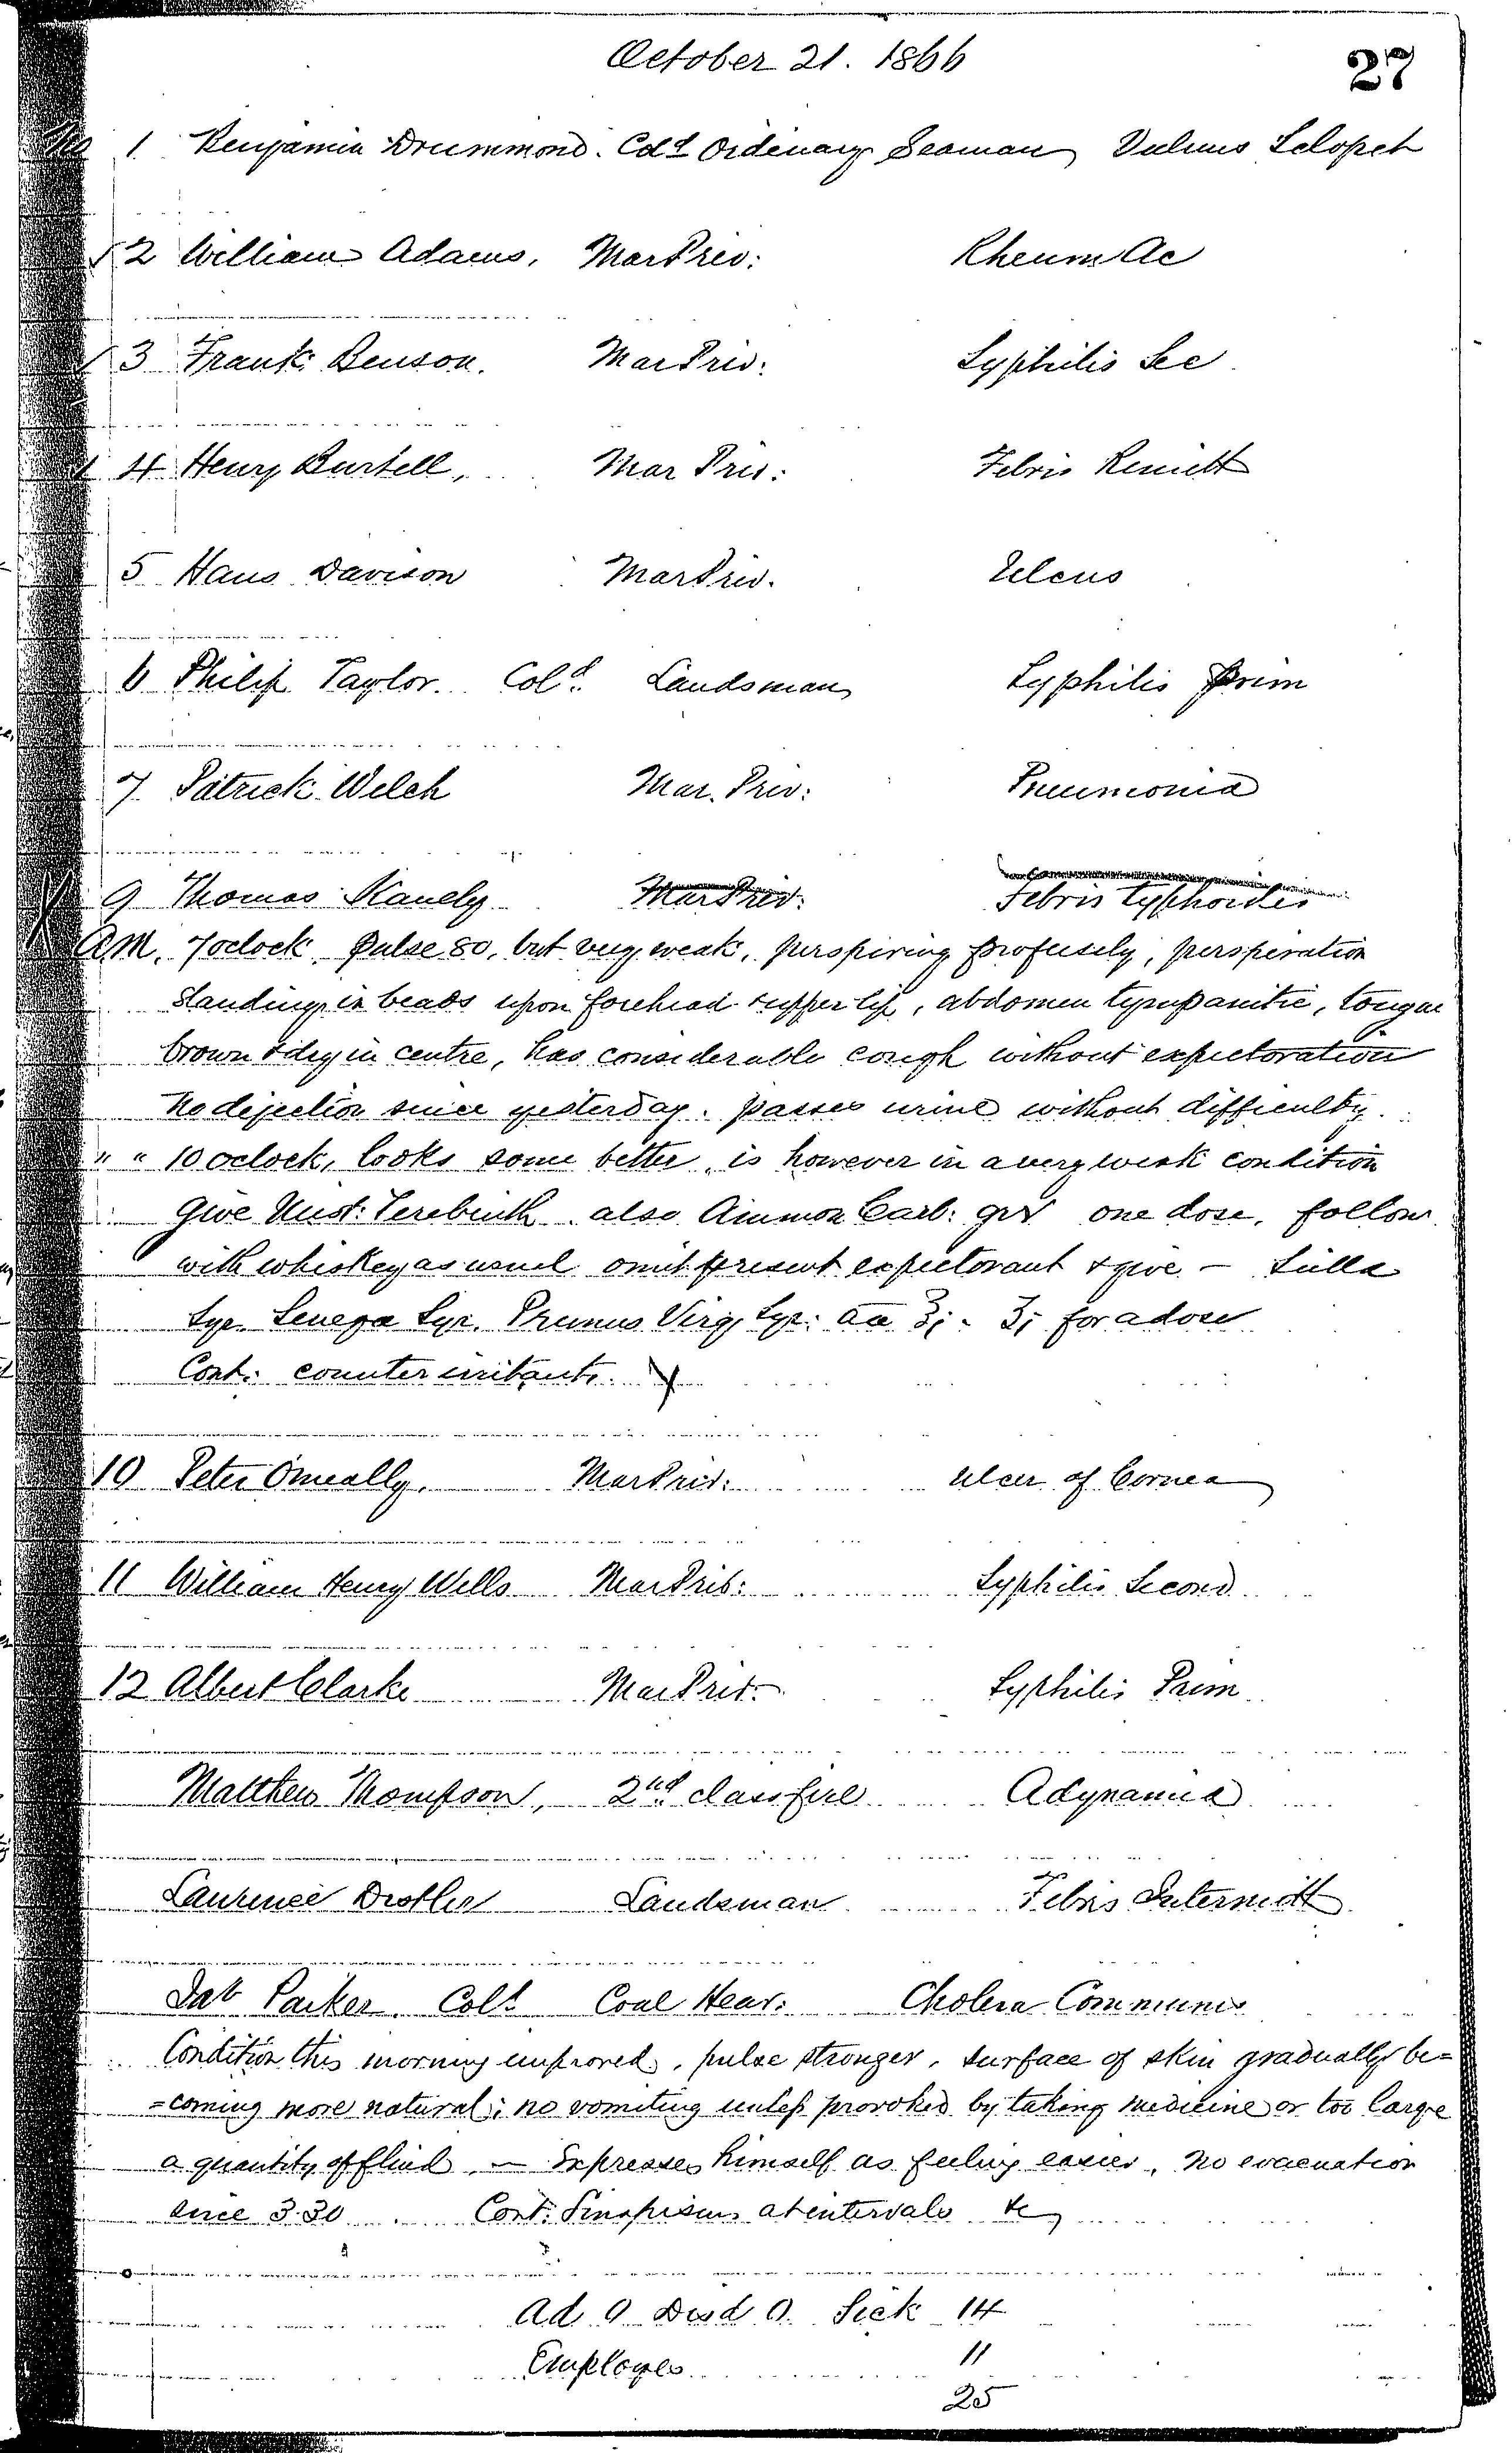 October 21. 1866
27
No 1 Benjamin Drummond. Cold Ordinary Seaman Vulnus Sclopet
2 William Adams, Mar Priv: Rheum Ac
3 Frank Benson. Mar Priv: Syphilis Sec
4 Henry Burtell, Mar Priv: Febris Remitt
5 Hans Davison Mar Priv. Ulcus
6 Philip Taylor. Cold. Landsman Syphilis Prim
7. Patrick Welch Mar. Priv: Pneumonia
9 Thomas Kanely Mar Priv: Febris Typhoides
A.M. 7 oclock. Pulse 80, but very weak, perspiring profusely, persperation
standing in beads upon forehead & upper lip, abdomen tympanitic, tongue
brown & dry in centre, has considerable cough without expectoration
No dejection since yesterday. passes urine without difficulty.
" " 10 oclock, looks some better, is however in a very weak condition
Give Terebinth also Ammon Carb: gr V one dose, follow
with whiskey as usual omit present expectorant & give — Scilla
Syr. Senega Syr. Prunus Virg. Syr: aa ʒj. ʒj for a dose
Cont: counter irritants.
10 Peter Omeally. Mar Priv: Ulcer of Cornea
11 William Henry Wells Mar Priv: Syphilis Second
12 Albert Clarke Mar Priv: Syphilis Prim
Matthew Thompson, 2nd class fire Adynamia
Laurence Landsman Febris Intermitt
Dab Parker. Cold Coal Heav: Cholera Communis
Condition this morning improved, pulse stronger, surface of skin gradually be=
=coming more natural; no vomiting unless provoked by taking medicine or too large
a quantity of fluid — Expresses himself as feeling easier, no evacuation
since 3.30. Cont: Sinapisms at intervals &c
Ad 0 Disd 0. Sick 14
Employes 11
25